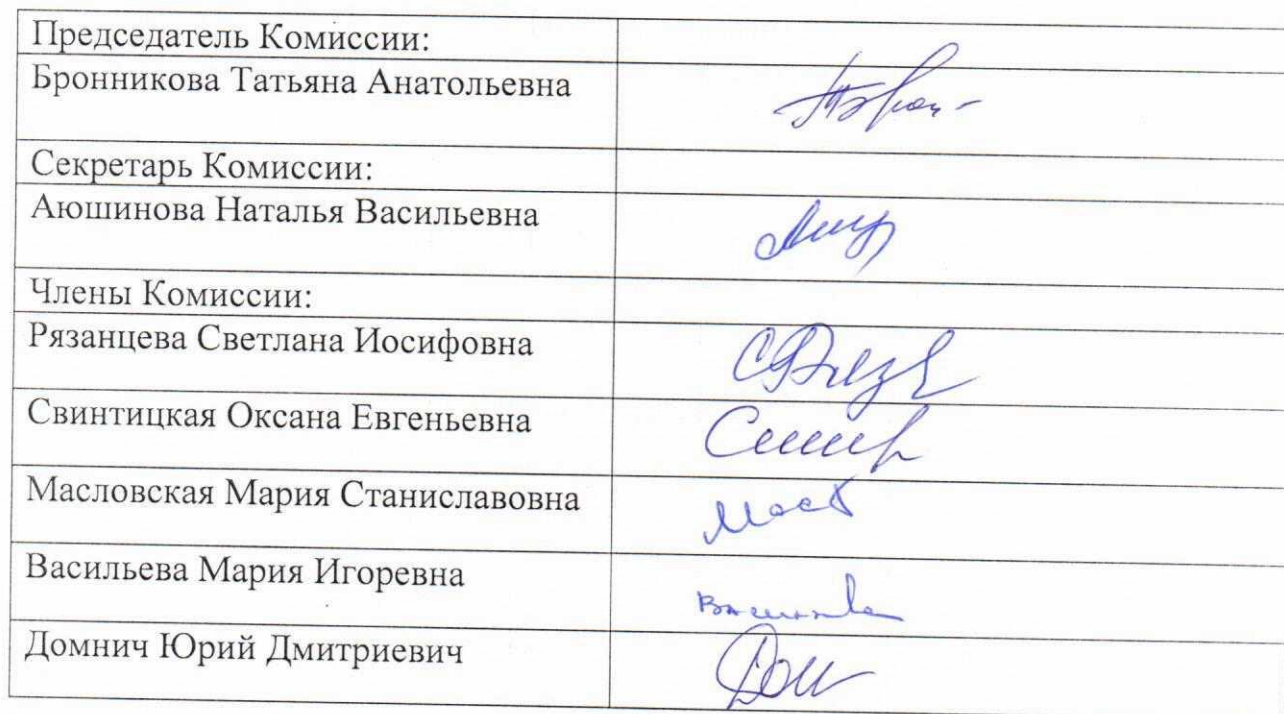 Председатель Комиссии:
Бронникова Татьяна Анатольевна
Секретарь Комиссии:
Аюшинова Наталья Васильевна
Члены Комиссии:
Рязанцева Светлана Иосифовна
Свинтицкая Оксана Евгеньевна
Масловская Мария Станиславовна
Васильева Мария Игоревна
Домнич Юрий Дмитриевич